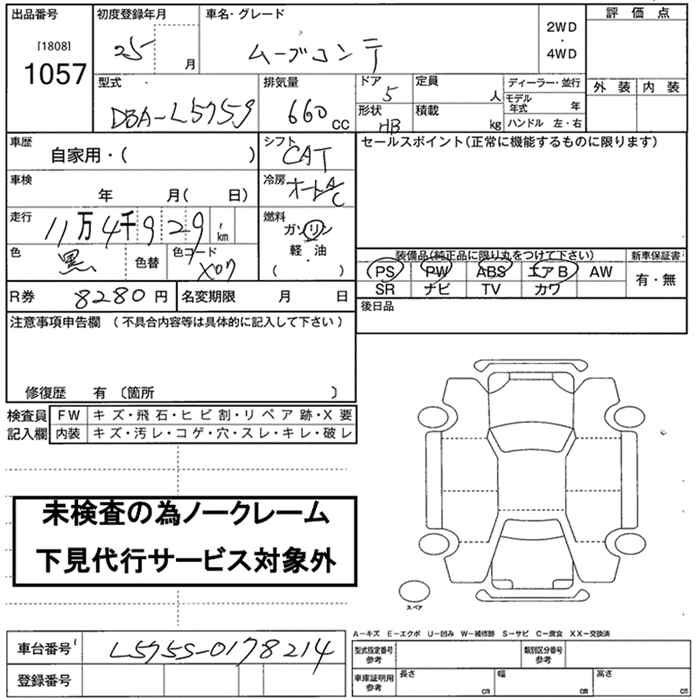 出品番号 初度登録年月 車名・グレード 2WD・4WD 評価点
[1808]
1057
25 月 ムーブコンテ
型式 排気量 ドア 定員 人 ディーラー・並行 外装 内装
DBA-L575S 660 CC 5 モデル年式 年
形状 HB 積載 kg ハンドル 左・右
車歴 自家用・( ) シフト CAT セールスポイント(正常に機能するものに限ります)
車検 年 月( 日) 冷房 オートA/C
走行 11万4千929 km 燃料 ガソリン
軽・油
( ・ )
色 黒 色替 色コード X07
装備品(純正品に限り丸をつけて下さい) 新車保証書
PS PW ABS エアB AW 有・無
SR ナビ TV カワ
R券 8280円 名変期限 月 日 後日品
注意事項申告欄 (不具合内容等は具体的に記入して下さい)
修復歴 有 〔箇所 〕
検査員 FW キズ・飛石・ヒビ割・リペア跡・X要
記入欄 内装 キズ・汚レ・コゲ・穴・スレ・キレ・破レ
未検査の為ノークレーム
下見代行サービス対象外
スペア
A-キズ E-エクボ U-凹み W-補修跡 S-サビ C-腐食 XX-交換済
車台番号 L575S-0178214 型式指定番号 参考 類別区分番号 参考
登録番号 車庫証明用 参考 長さ cm 幅 cm 高さ cm